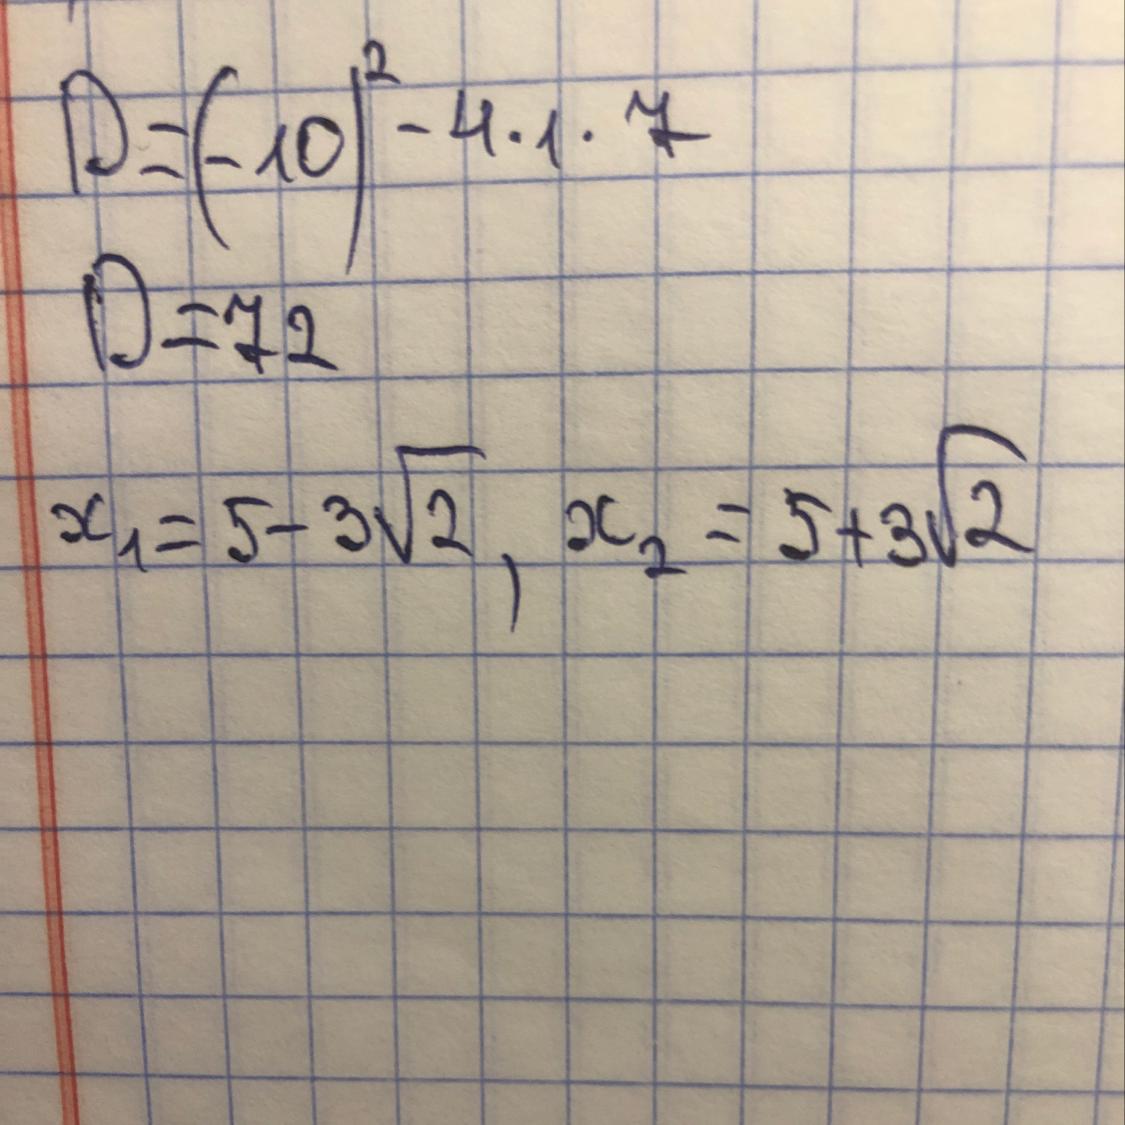 D=(-10)² - 4·1·7
D=72
x₁= 5-3√2, x₂ = 5+3√2